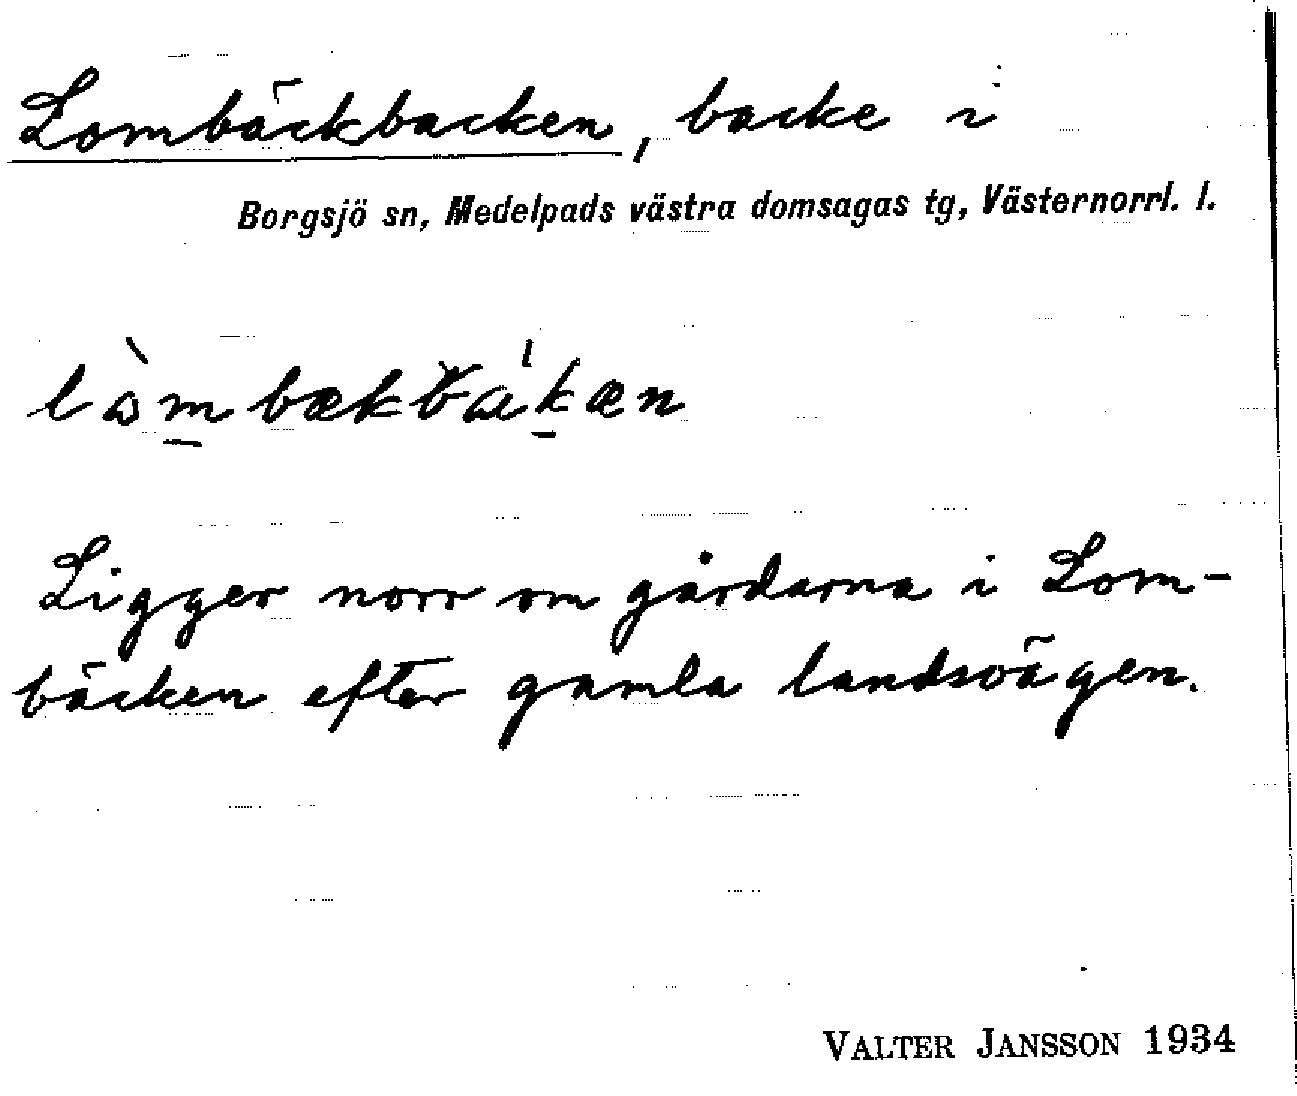 Lombäckbacken, backe i
Borgsjö sn, Medelpads västra domsagas tg, Västernorrl. l.
lòm̲bækbák̲æn
Ligger norr om gårdarna i Lom-
bäcken efter gamla landsvägen.
VALTER JANSSON 1934